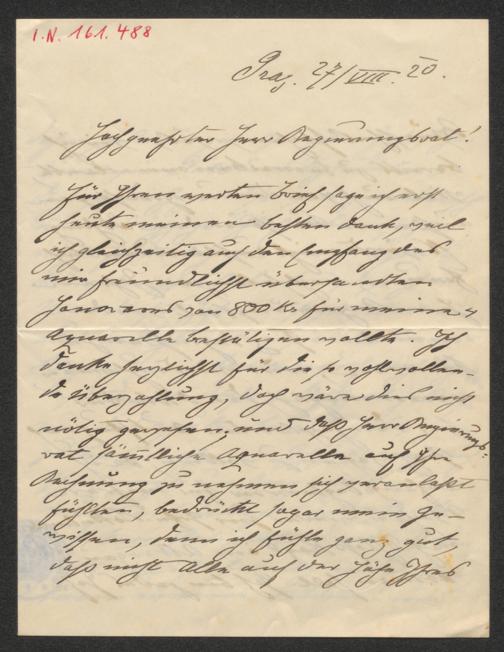 I.N. 161.488
Graz. 27/VIII. 20.
Hochgeehrter Herr Regierungsrat!
Für Ihren werten Brief sage ich erst
heute meinen besten Dank, weil
ich gleichzeitig auch den Empfang des
mir freundlichst übersandten
Honorares von 800 Kr für meine
Aquarelle bestätigen wollte. Ich
danke herzlichst für diese wohlwollen-
de Überzahlung, doch wäre dies nicht
nötig gewesen, und daß Herr Regierungs-
rat sämtliche Aquarelle auf Ihre
Rechnung zu nehmen sich veranlaßt
fühlten, bedrückt sogar mein Ge-
wissen, denn ich fühle ganz gut,
daß nicht Alle auf der Höhe Ihres